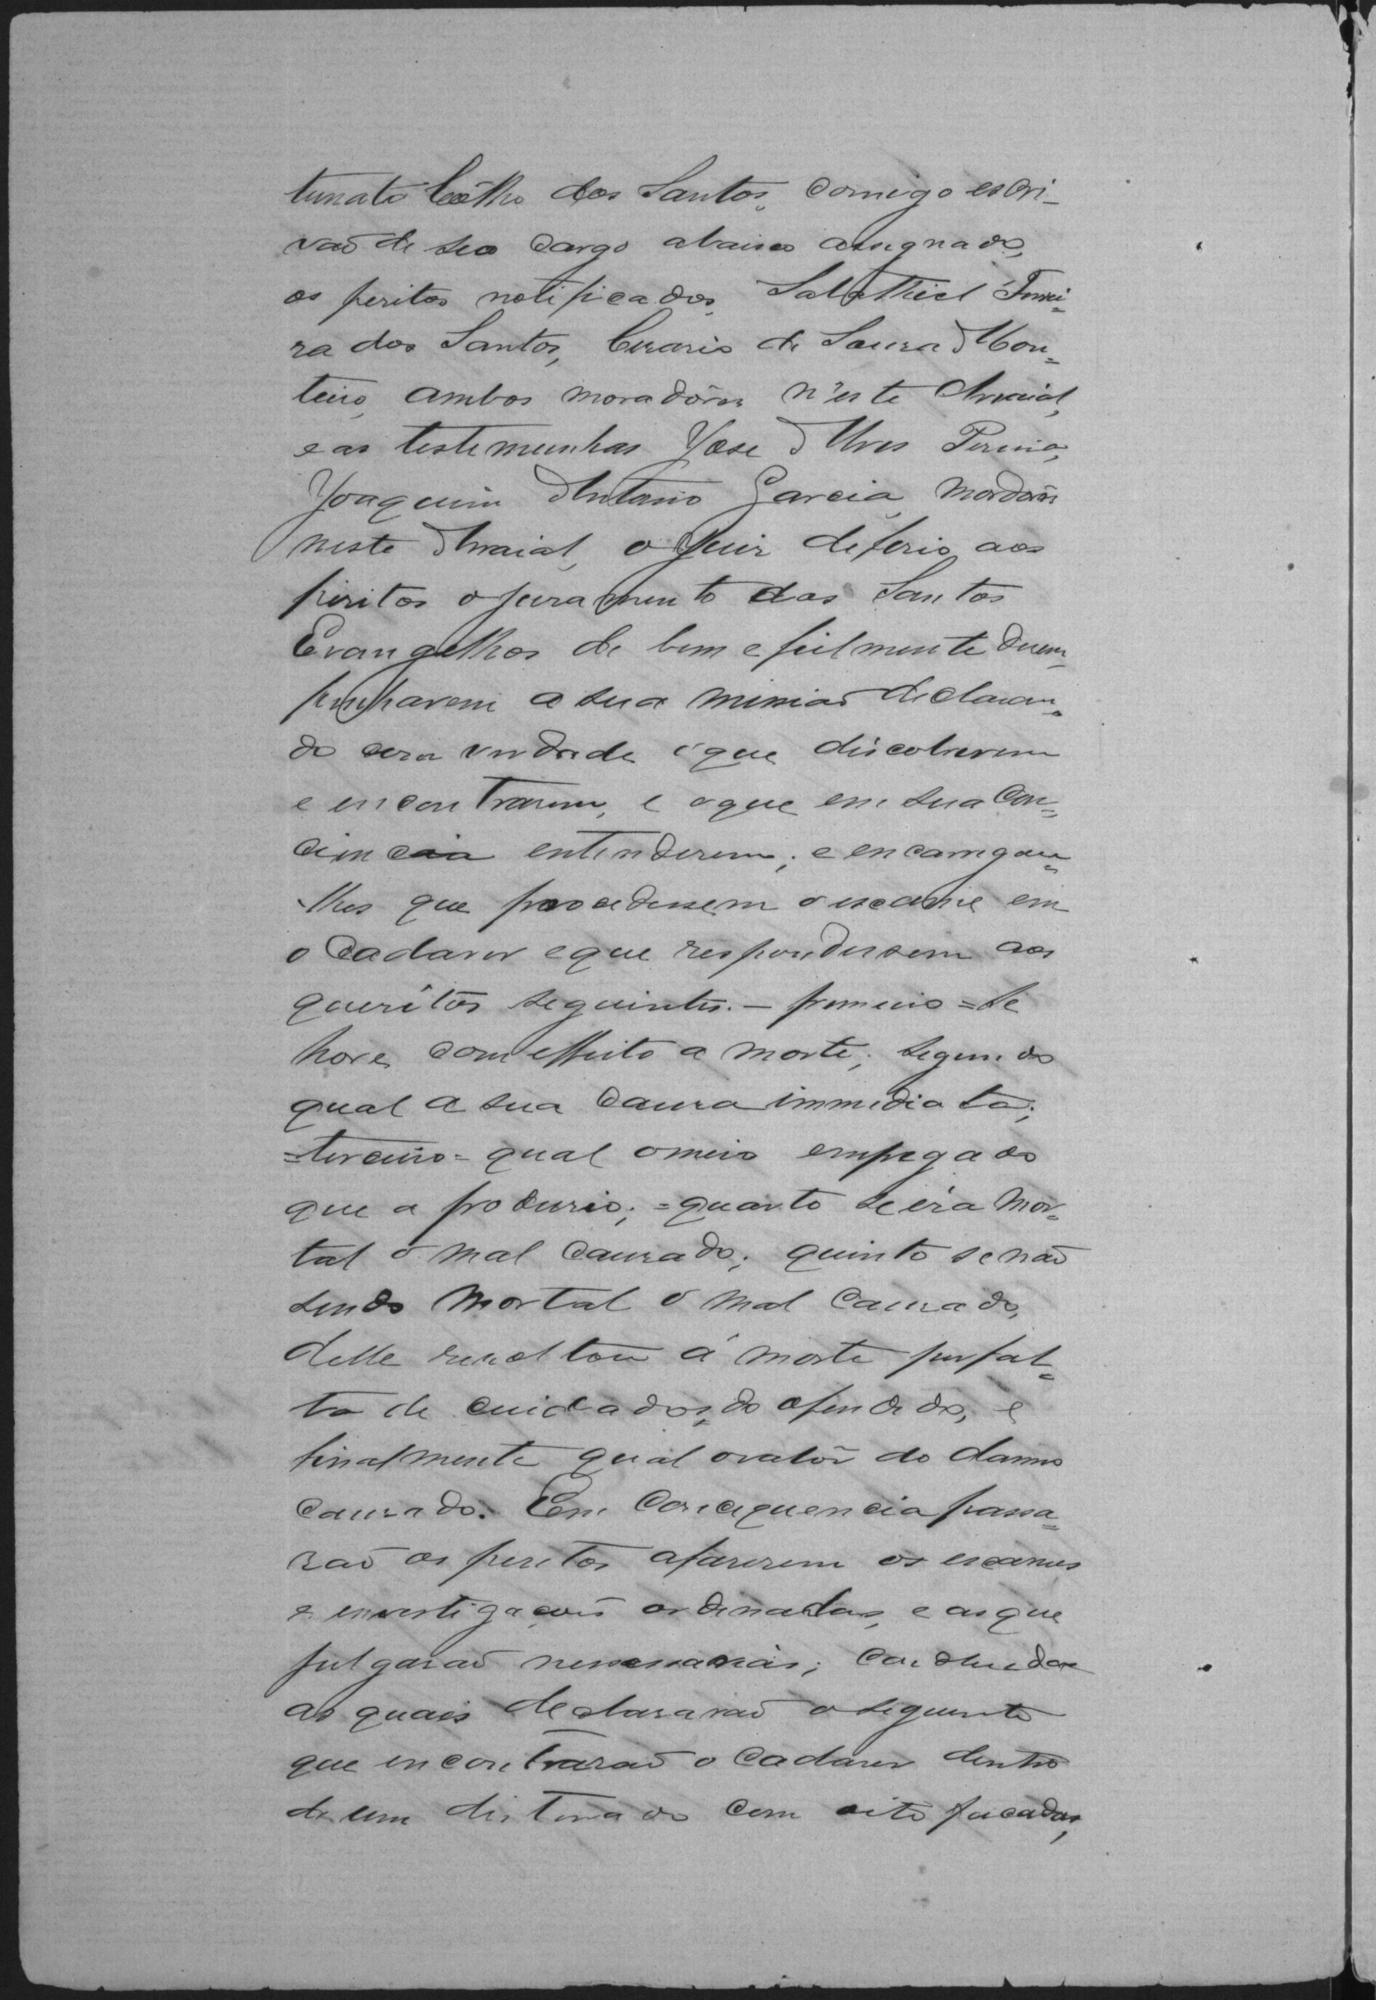 tunato Coêlho dos Santos, comigo escri-
vaõ de seo cargo abaixo assignado,
os peritos notificados, Salathiel Ferrei=
ra dos Santos, Cezario de Souza Mon=
teiro, ambos moradôres n'este Arraial,
e as testemunhas Jose Alves Pereira,
Joaquim Antonio Garcia, moradôres
neste Arraial, o Juiz deferio aos
piritos o juramento dos Santos
Evangelhos de bem e fielmente dezem=
penharem a sua missaõ declaran=
do com verdade o que discobrirem
e encontrarem, e o que em sua con=
ciencia entenderem; e encarregou=
lhes que procedessem o escame em
o Cadaver e que respondessem aos
queritos seguintes. — primeiro = Se
hove com effeito a morte; segundo
qual a sua cauza immediata;
= terceiro = qual o meio empregado
que a produzio; = quarto se éra mor=
tal o mal cauzado; quinto se naõ
sendo mortal o mal cauzado,
delle rezultou á morte por fal=
ta de cuidados, do ofendido, e
finalmente qual o valôr do damno
cauzado. Em Concequencia passa=
raõ os peritos afazerem os escames
e envestigaçois ordenadas, e as que
julgaraõ nescessarias; concluidas
as quais declararaõ o seguinte
que encontraraõ o Cadaver dentro
de um distonado com oito facadas,